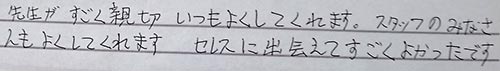 先生が すごく親切 いつもよくしてくれます。スタッフのみなさ
んも よくしてくれます セレスに出会えてすごくよかったです